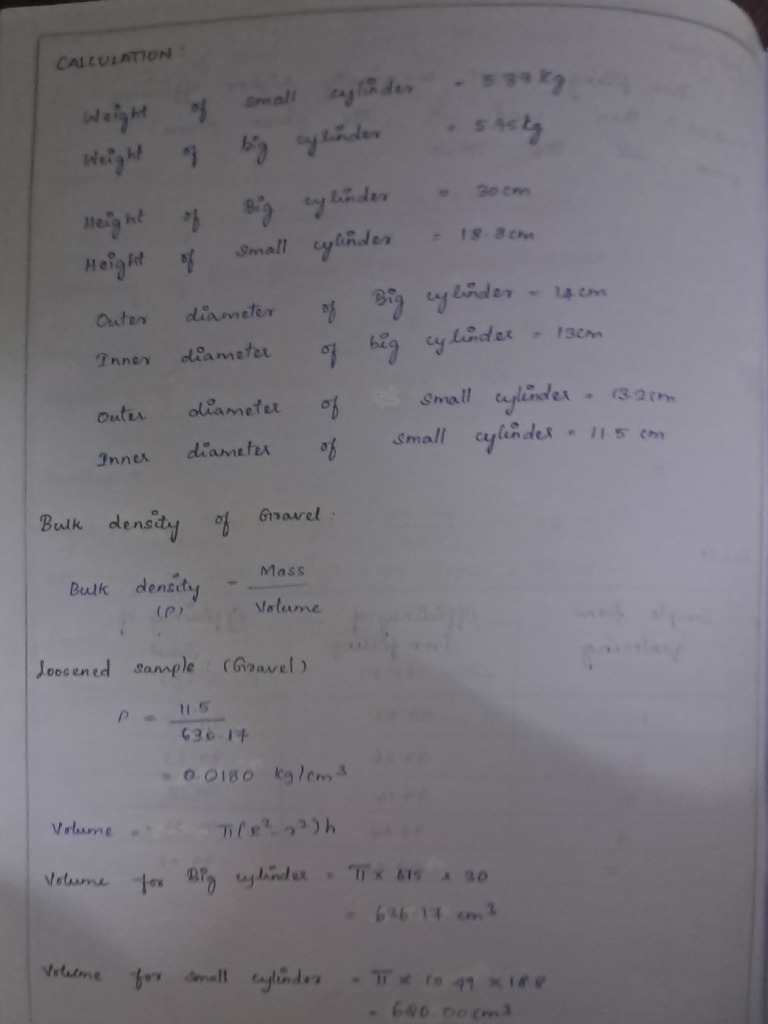 CALCULATION:
Weight of small cylinder = 5.87kg
Weight of big cylinder = 5.45kg
Height of Big cylinder = 30cm
Height of small cylinder = 18.8cm
Outer diameter of Big cylinder = 14cm
Inner diameter of big cylinder = 13cm
Outer diameter of small cylinder = 13.2cm
Inner diameter of small cylinder = 11.5 cm
Bulk density of Gravel:
Bulk density = Mass
(ρ) Volume
Loosened sample: (Gravel)
ρ = 11.5
636.17
= 0.0180 kg/cm³
Volume = π(R²-r²)h
Volume for Big cylinder = π × 6.75 × 30
= 636.17 cm³
Volume for small cylinder = π × 10.49 × 18.8
= 620.00cm³